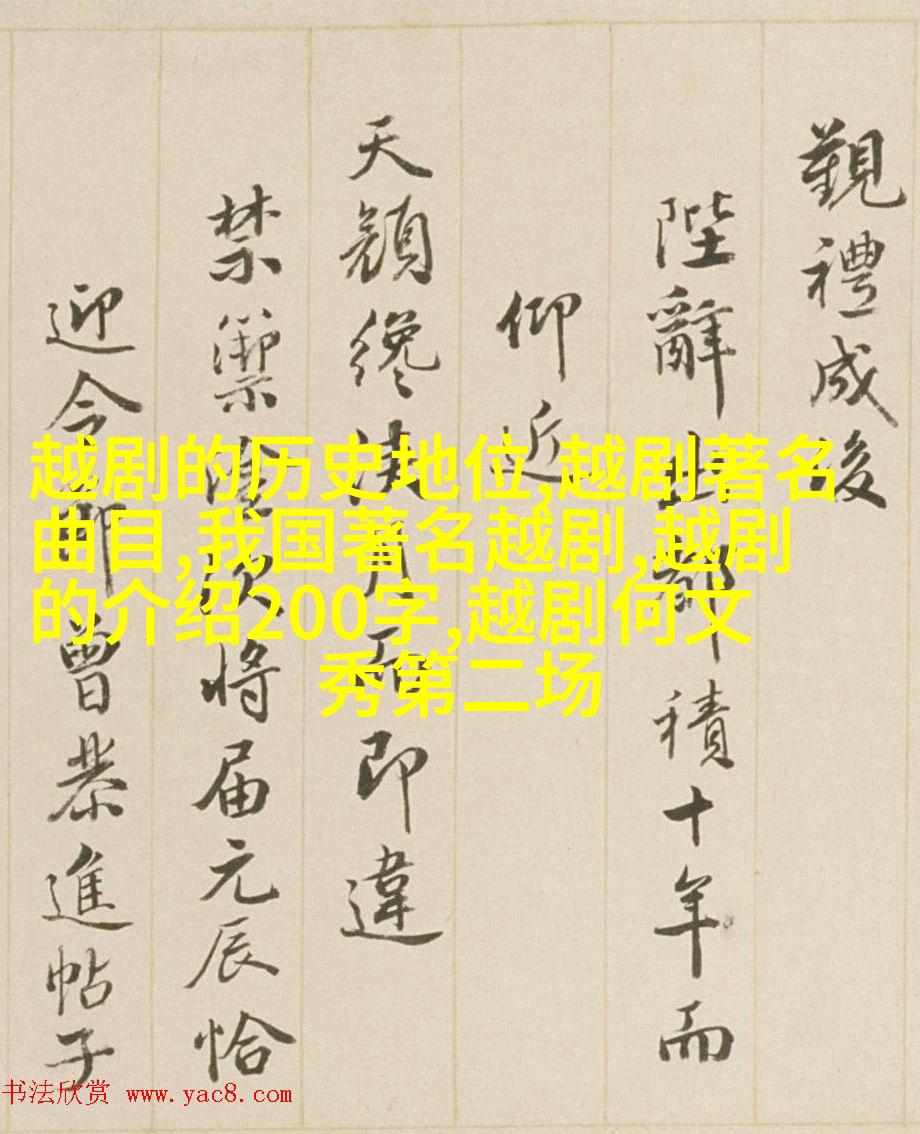 觀禮成後
陛辭出都積十年而
仰近
天顏纔浹月而即違
禁禦次將届元辰恰
迎令節曾恭進帖子
越剧的历史地位,越剧著名
曲目,我国著名越剧,越剧
的介绍200字,越剧何文
秀第二场
书法欣赏 www.yac8.com